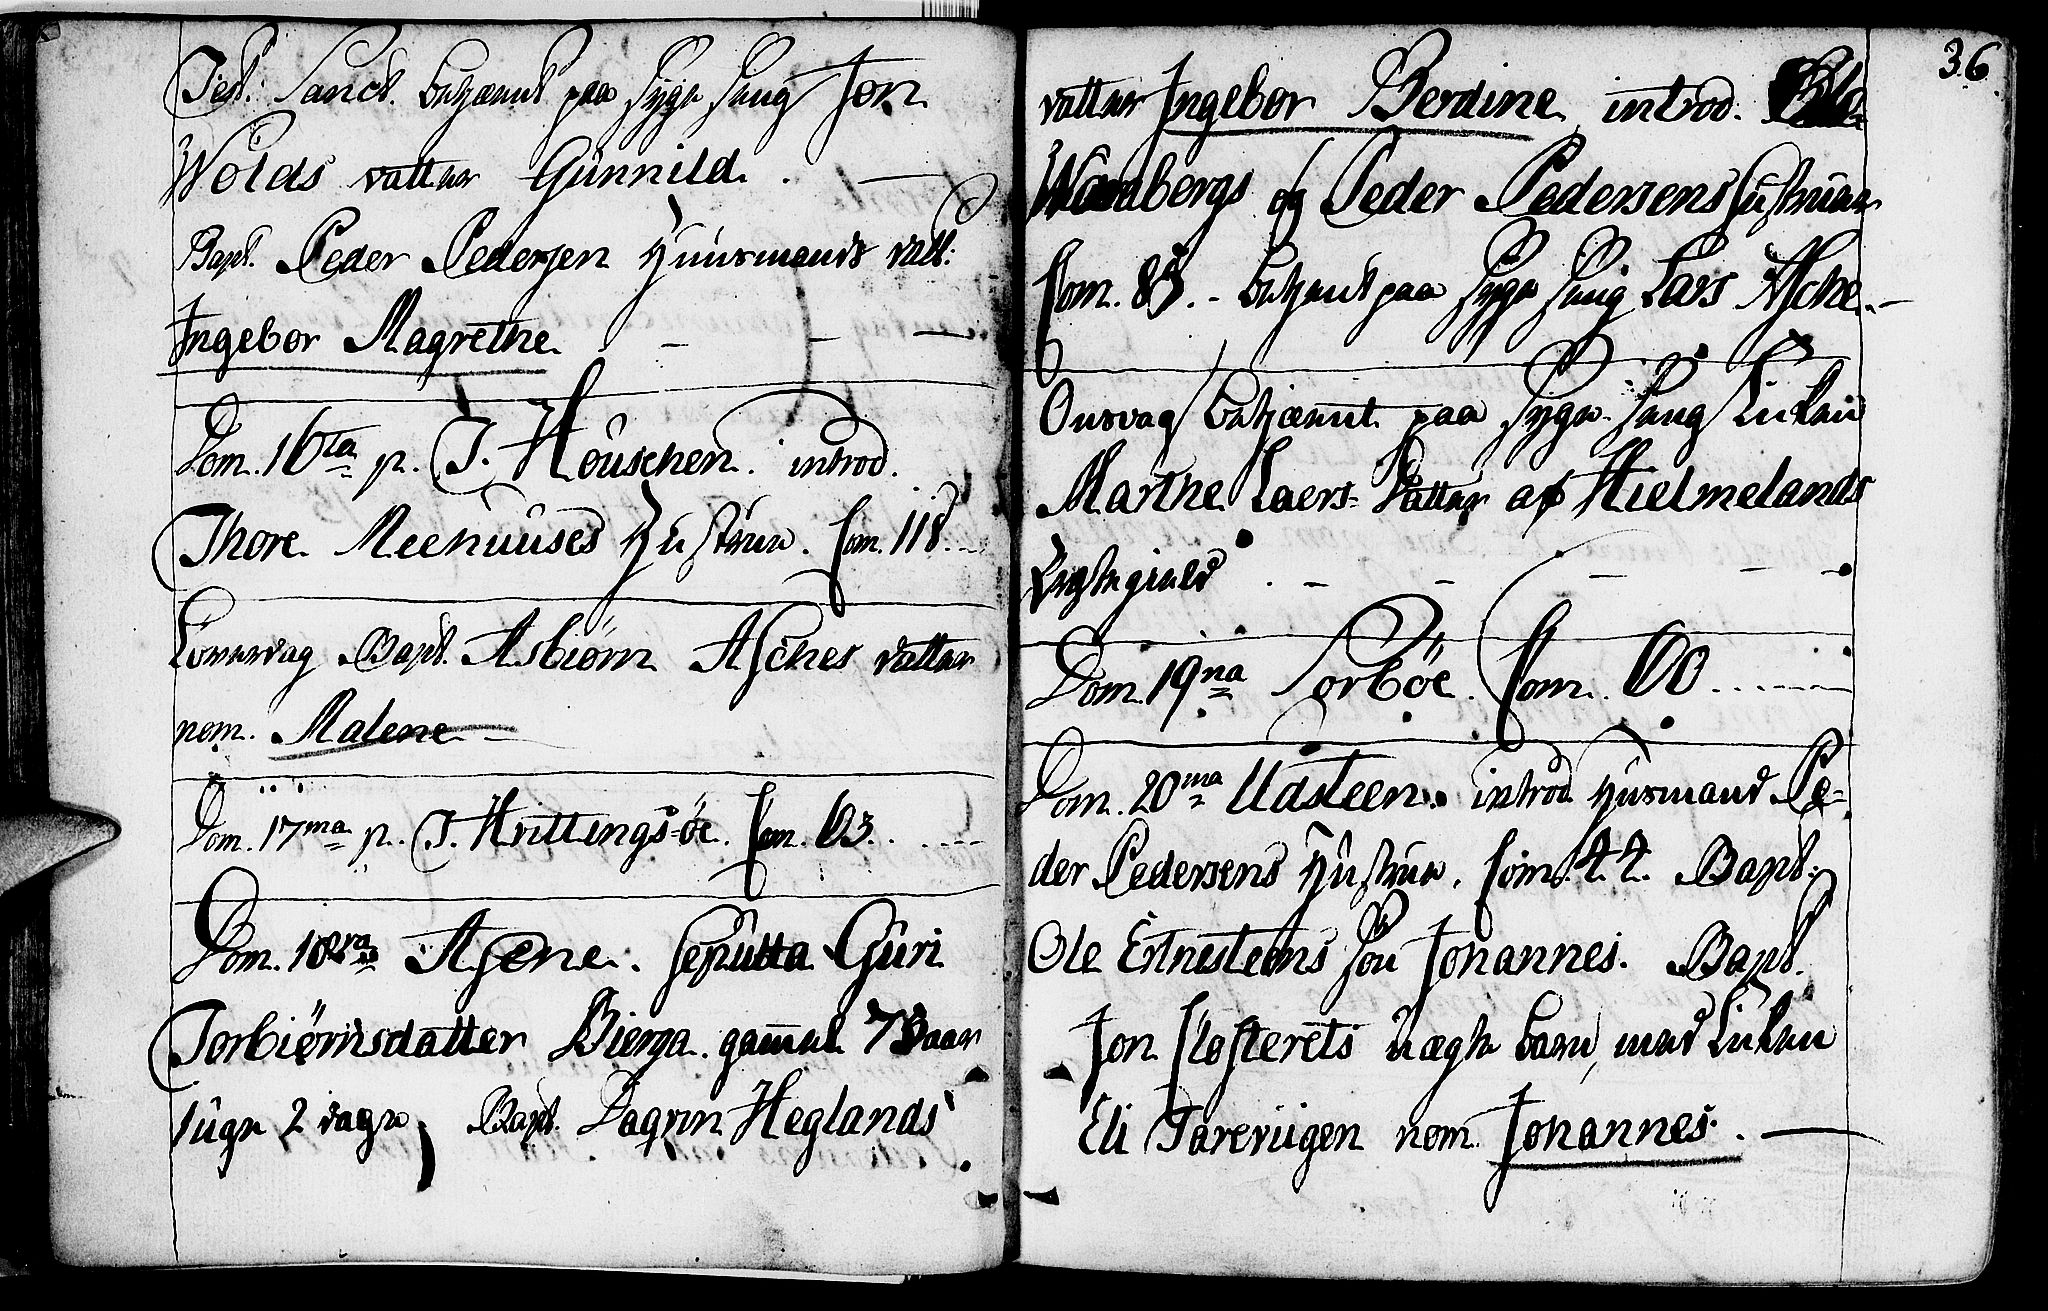 Fest: Sanct. betjænt paa Syge Seng Jon
Wolds datter Gunnild. —
Bapt. Peder Pedersen Huusmands datt:
Ingebor Magrethe. — — —
Dom. 16ta p. T. Houschen. introd.
Thore Meehuuses Hustrue. Com. 118. —
Löverdag Bapt. Asbiørn Asches datter
nom. Malene —
Dom. 17ma p. T. Hvittings-öe. Com. 63. . . . .
Dom. 18va Ascne. Sepulta Guri
Torbiørnsdatter Bierga. gammel 78 aar
1 uge 2 dage, Bapt. Dagvin Heglands
36.
datter Ingebor Berdine, introd.
Wodbergs og Peder Pedersens Hustruer
Com. 83. - betjent paa Syge Seng Lars Asche. —
Onsdag betjænt paa Syge Seng Enken
Marthe Laers-Datter af Hielmelands
Præstegield . — — — — —
Dom. 19na Sorböe. Com. 60. . . . .
Dom. 20ma Udsteen. introd Husmand Pe-
der Pedersens Hustrue. Com. 42. Bapt.
Ole Ertnesteens Søn Johannes. Bapt.
Jon Closterets uægte barn, med Enken
Eli Tarevigen nom. Johannes. —